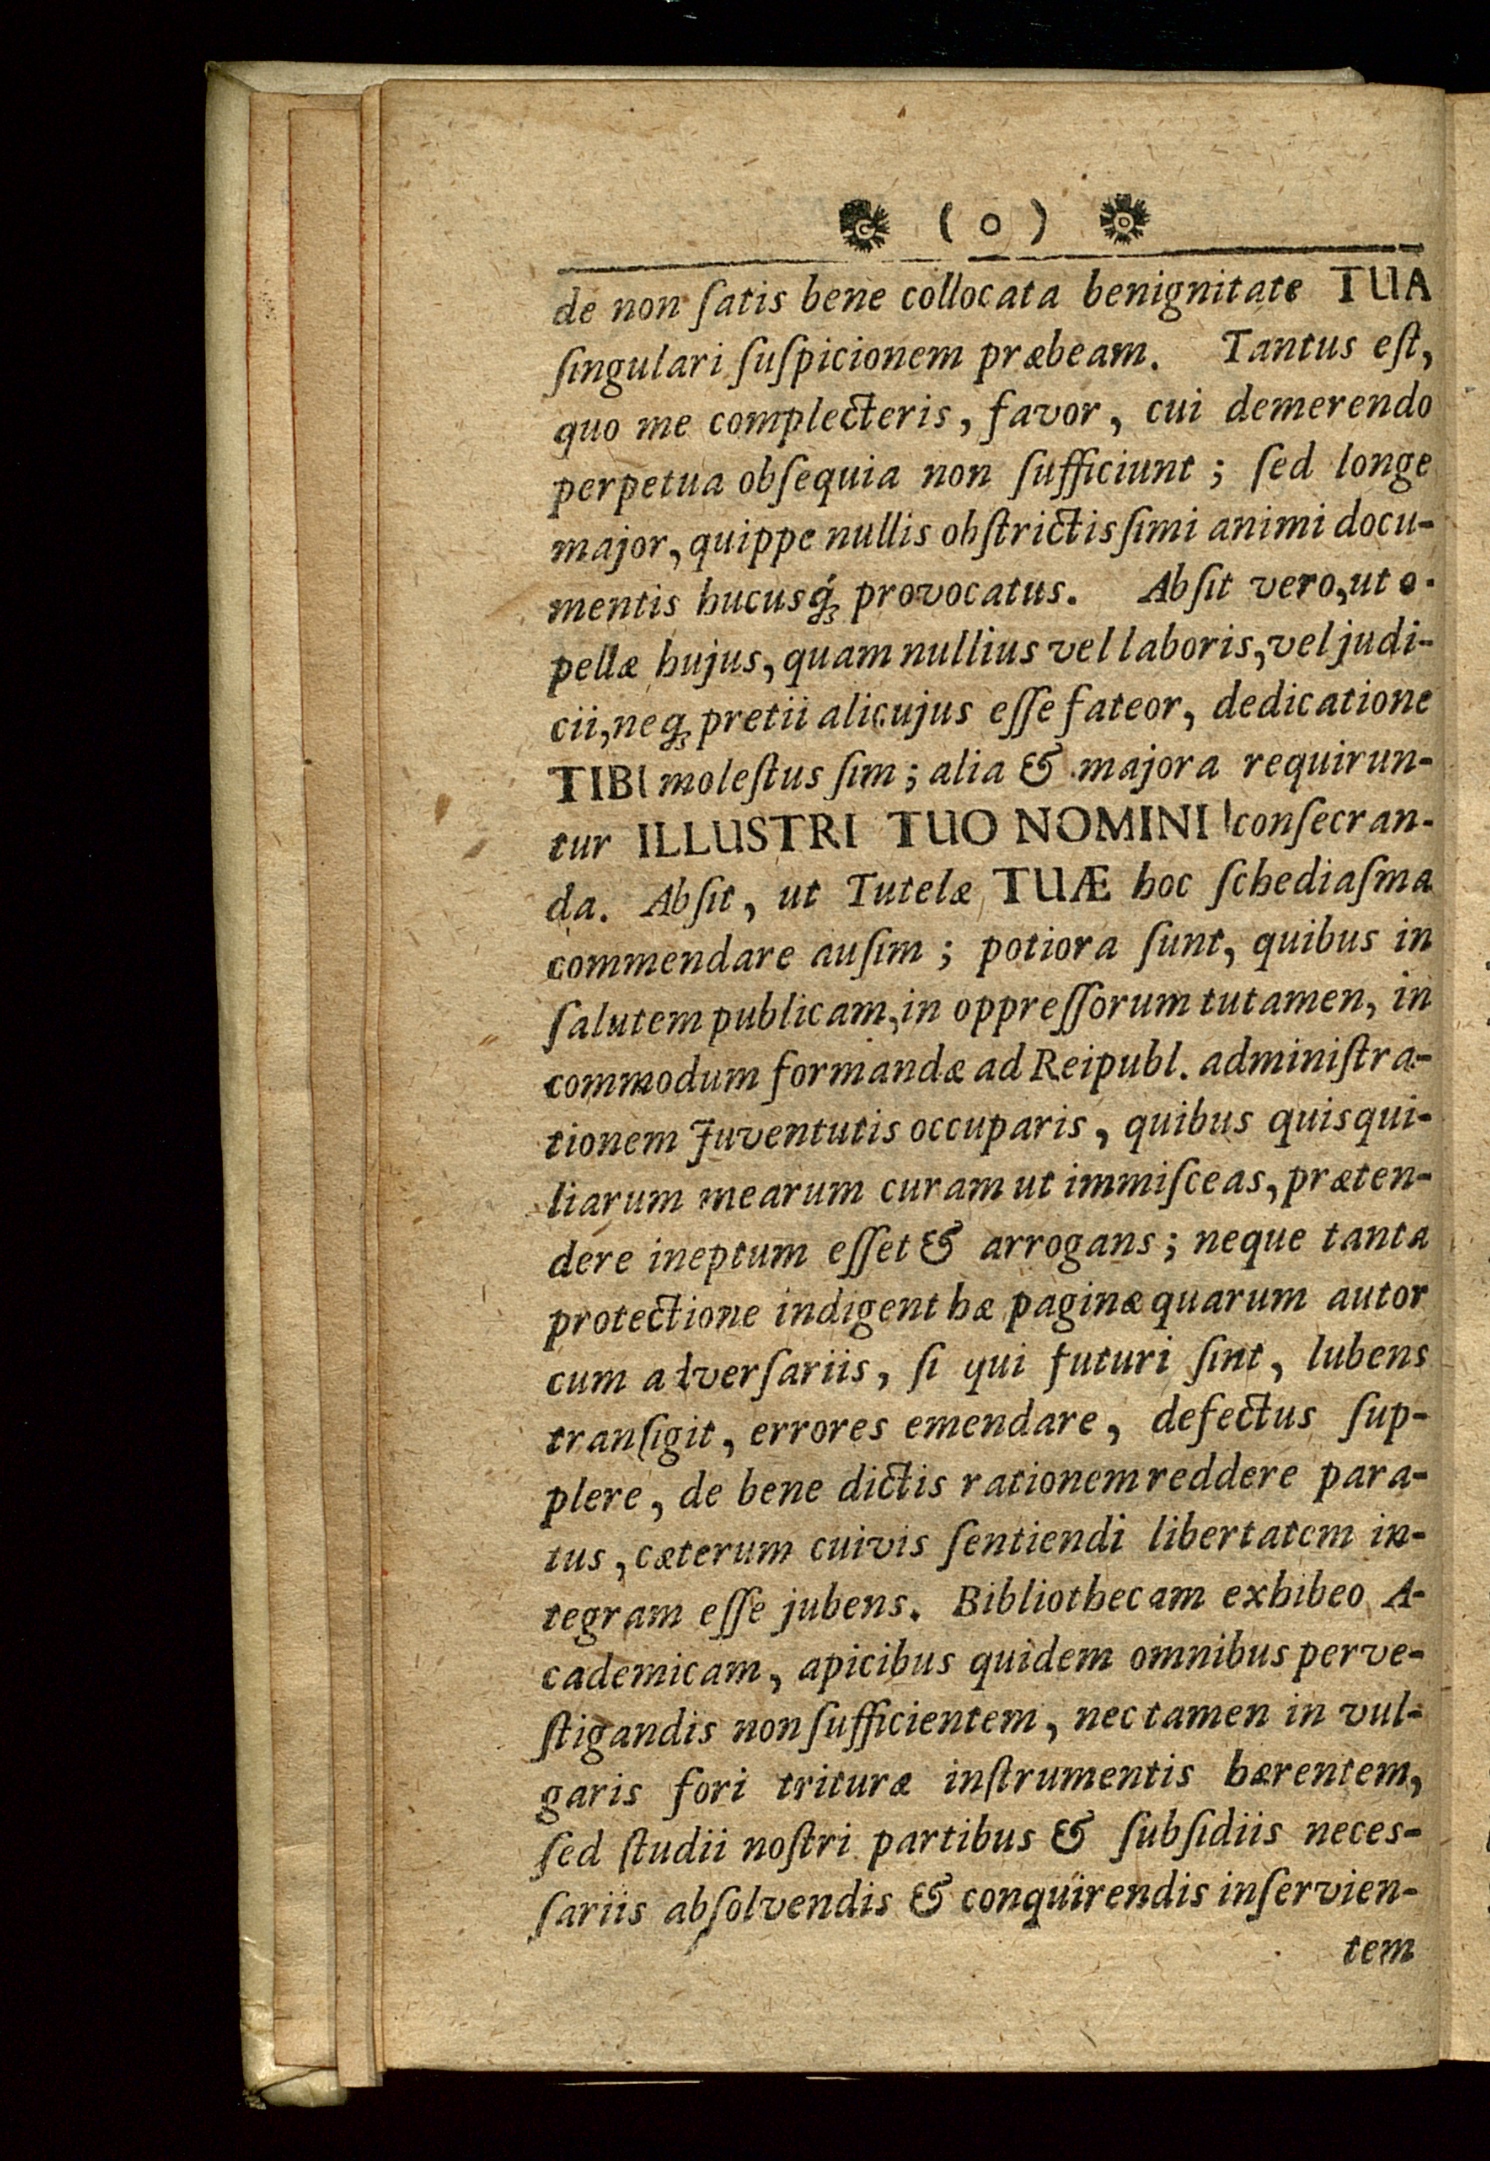 ( o )
de non ſatis bene collocata benignitate TUA
ſingulari ſuſpicionem præbeam. Tantus eſt,
quo me complecteris, favor, cui demerendo
perpetua obſequia non ſufficiunt; ſed longe
major, quippe nullis obſtrictisſimi animi docu-
mentis hucusq́; provocatus. Abſit vero, ut o-
pellæ hujus, quam nullius vel laboris, vel judi-
cii, neq; pretii alicujus eſſe fateor, dedicatione
TIBI moleſtus ſim; alia & majora requirun-
tur ILLUSTRI TUO NOMINI conſecran-
da. Abſit, ut Tutelæ TUÆ hoc ſchediaſma
commendare auſim; potiora ſunt, quibus in
ſalutem publicam, in oppreſſorum tutamen, in
commodum formandæ ad Reipubl. adminiſtra-
tionem Juventutis occuparis, quibus quisqui-
liarum mearum curam ut immiſceas, præten-
dere ineptum eſſet & arrogans; neque tanta
protectione indigent hæ paginæ quarum autor
cum adverſariis, ſi qui futuri ſint, lubens
tranſigit, errores emendare, defectus ſup-
plere, de bene dictis rationem reddere para-
tus, cæterum cuivis ſentiendi libertatem in-
tegram eſſe jubens. Bibliothecam exhibeo A-
cademicam, apicibus quidem omnibus perve-
ſtigandis non ſufficientem, nec tamen in vul-
garis fori trituræ inſtrumentis hærentem,
ſed ſtudii noſtri partibus & ſubſidiis neces-
ſariis abſolvendis & conquirendis inſervien-
tem